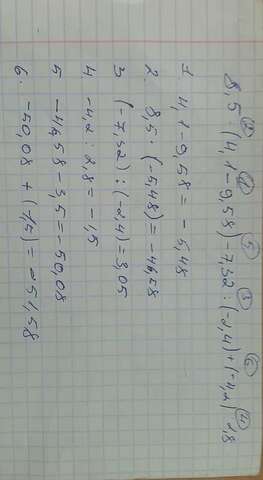 2 1 5 3 6 4
8,5 · (4,1-9,58)-7,32:(-2,4)+(-4,2):2,8
1. 4,1-9,58 = -5,48
2. 8,5 · (-5,48) = -46,58
3 (-7,32) : (-2,4) = 3,05
4. -4,2 : 2,8 = -1,5
5 -46,58-3,5=-50,08
6. -50,08 + (1,5) = -51,58